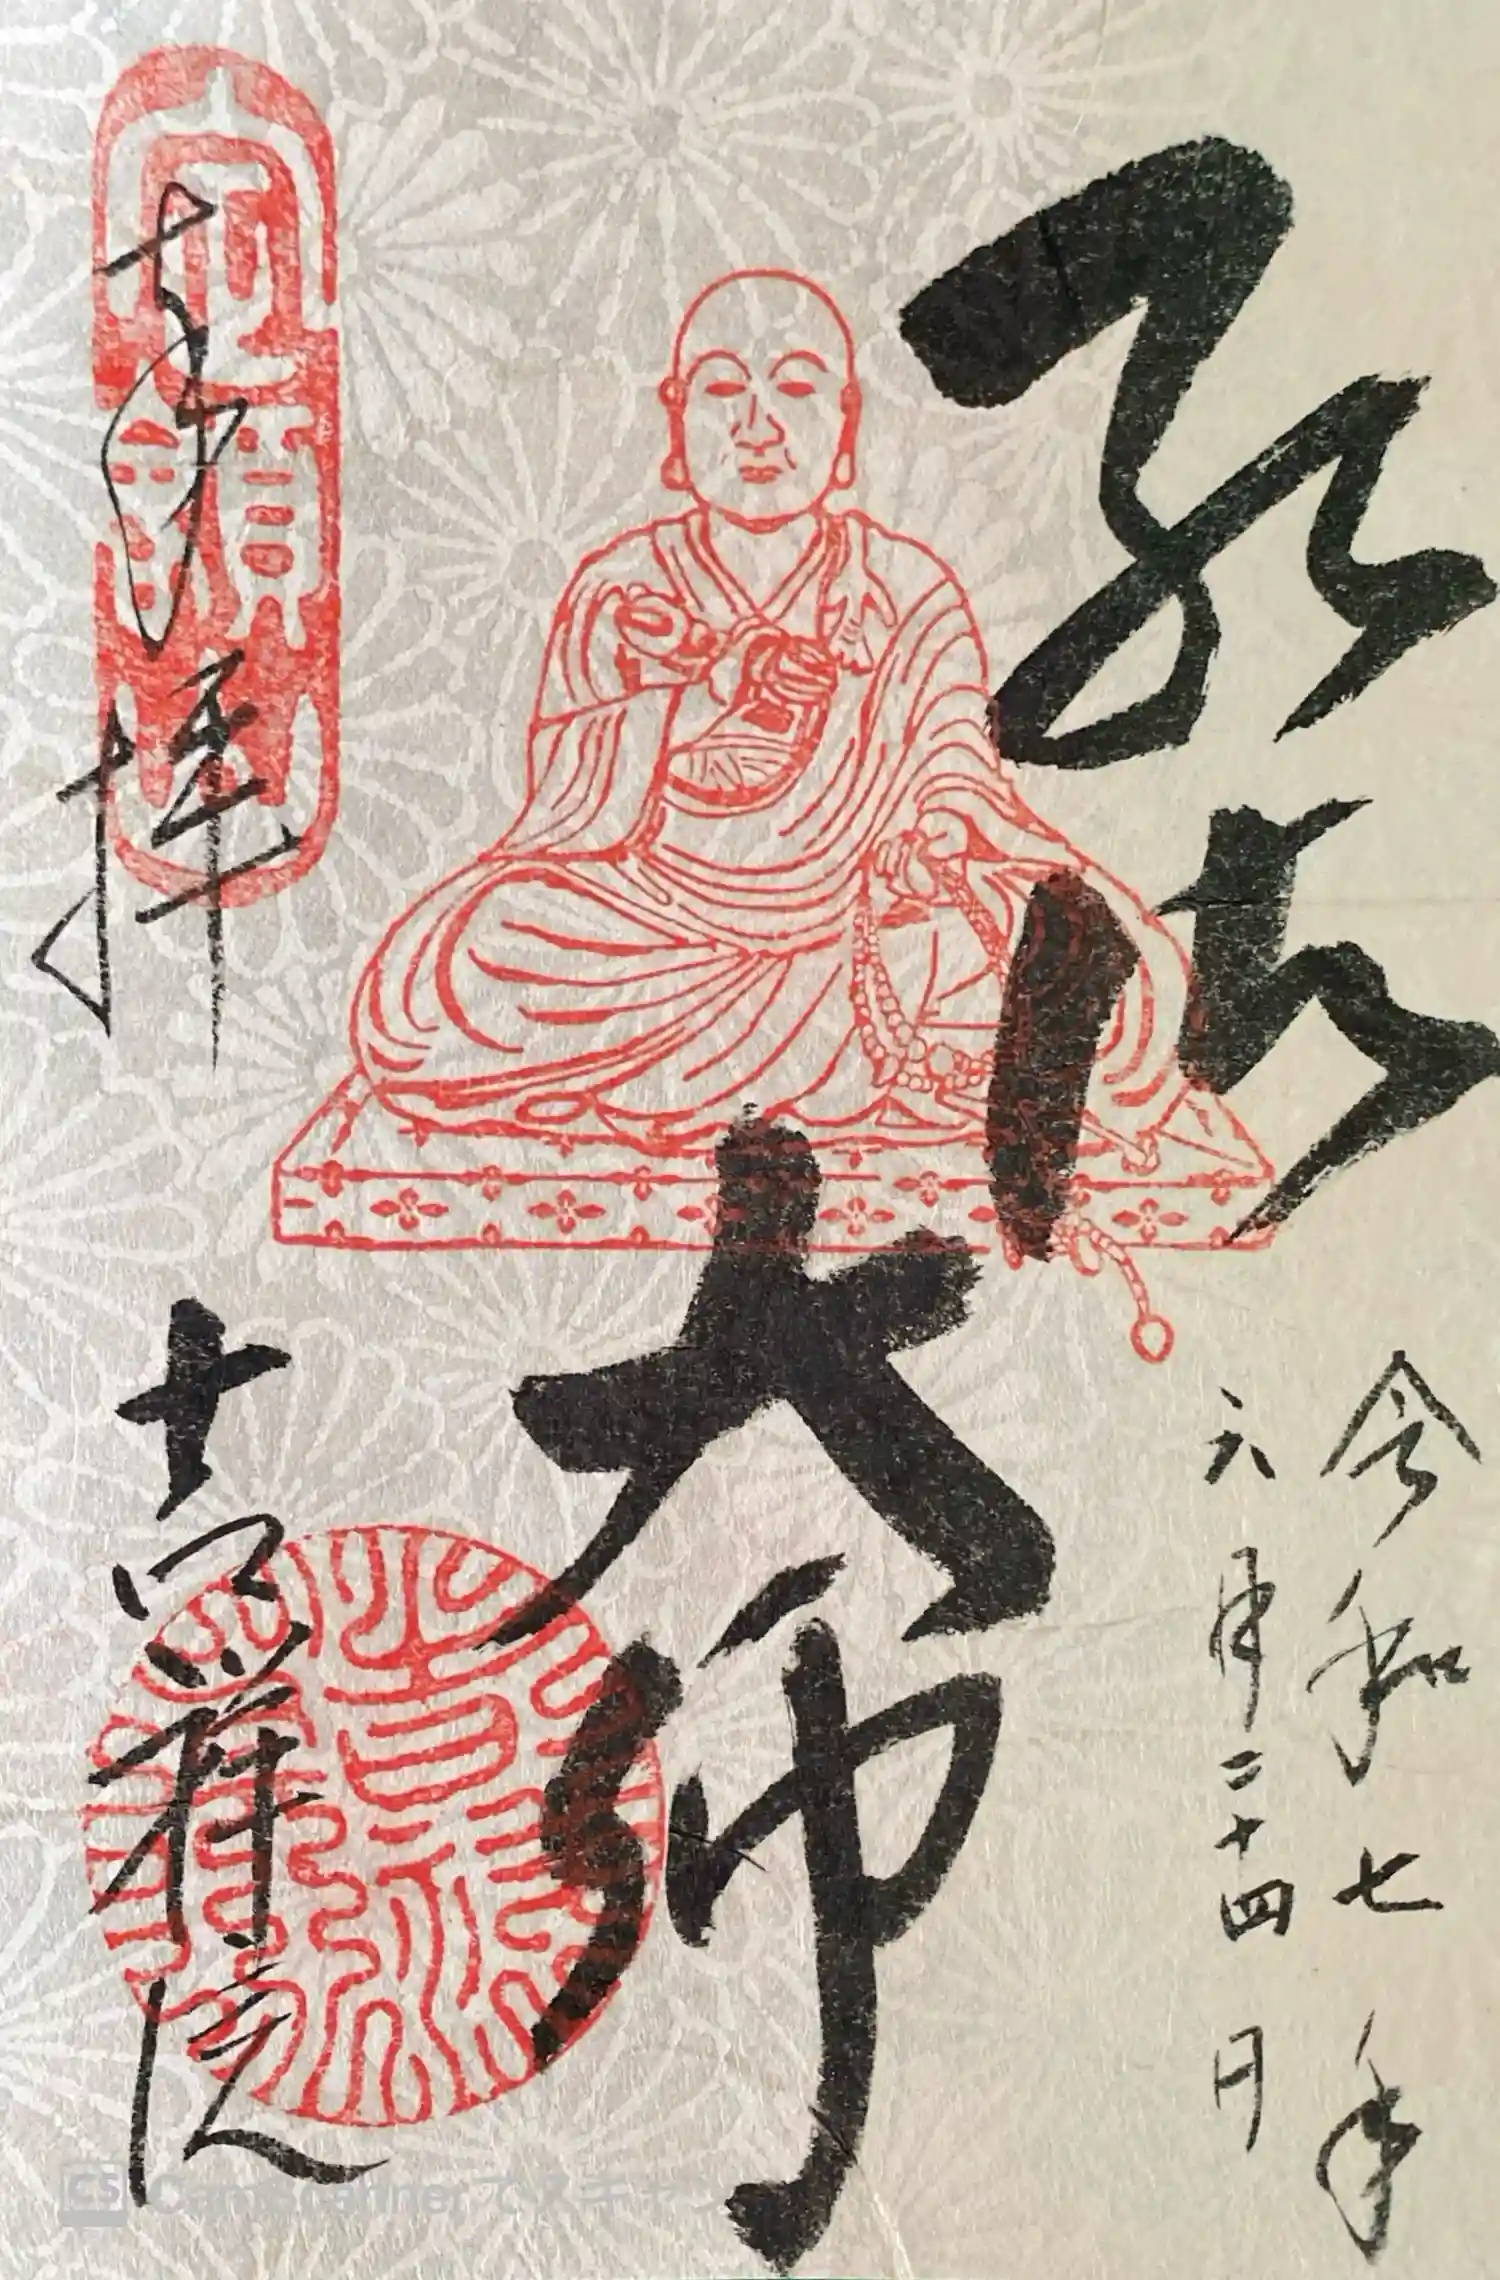 令和七年
六月二十四日
弘法
大師
奉拝
吉祥院
CS CamScanner でスキャン